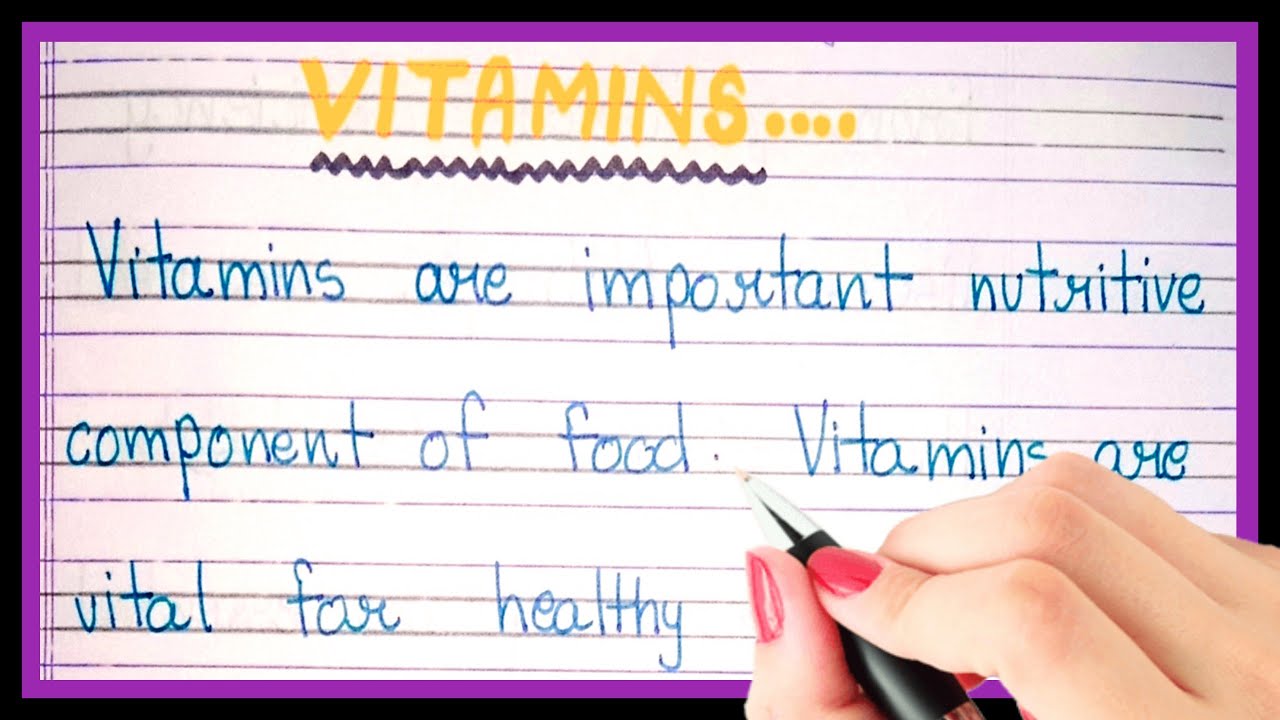 VITAMINS....
Vitamins are important nutritive
component of food. Vitamins are
vital for healthy